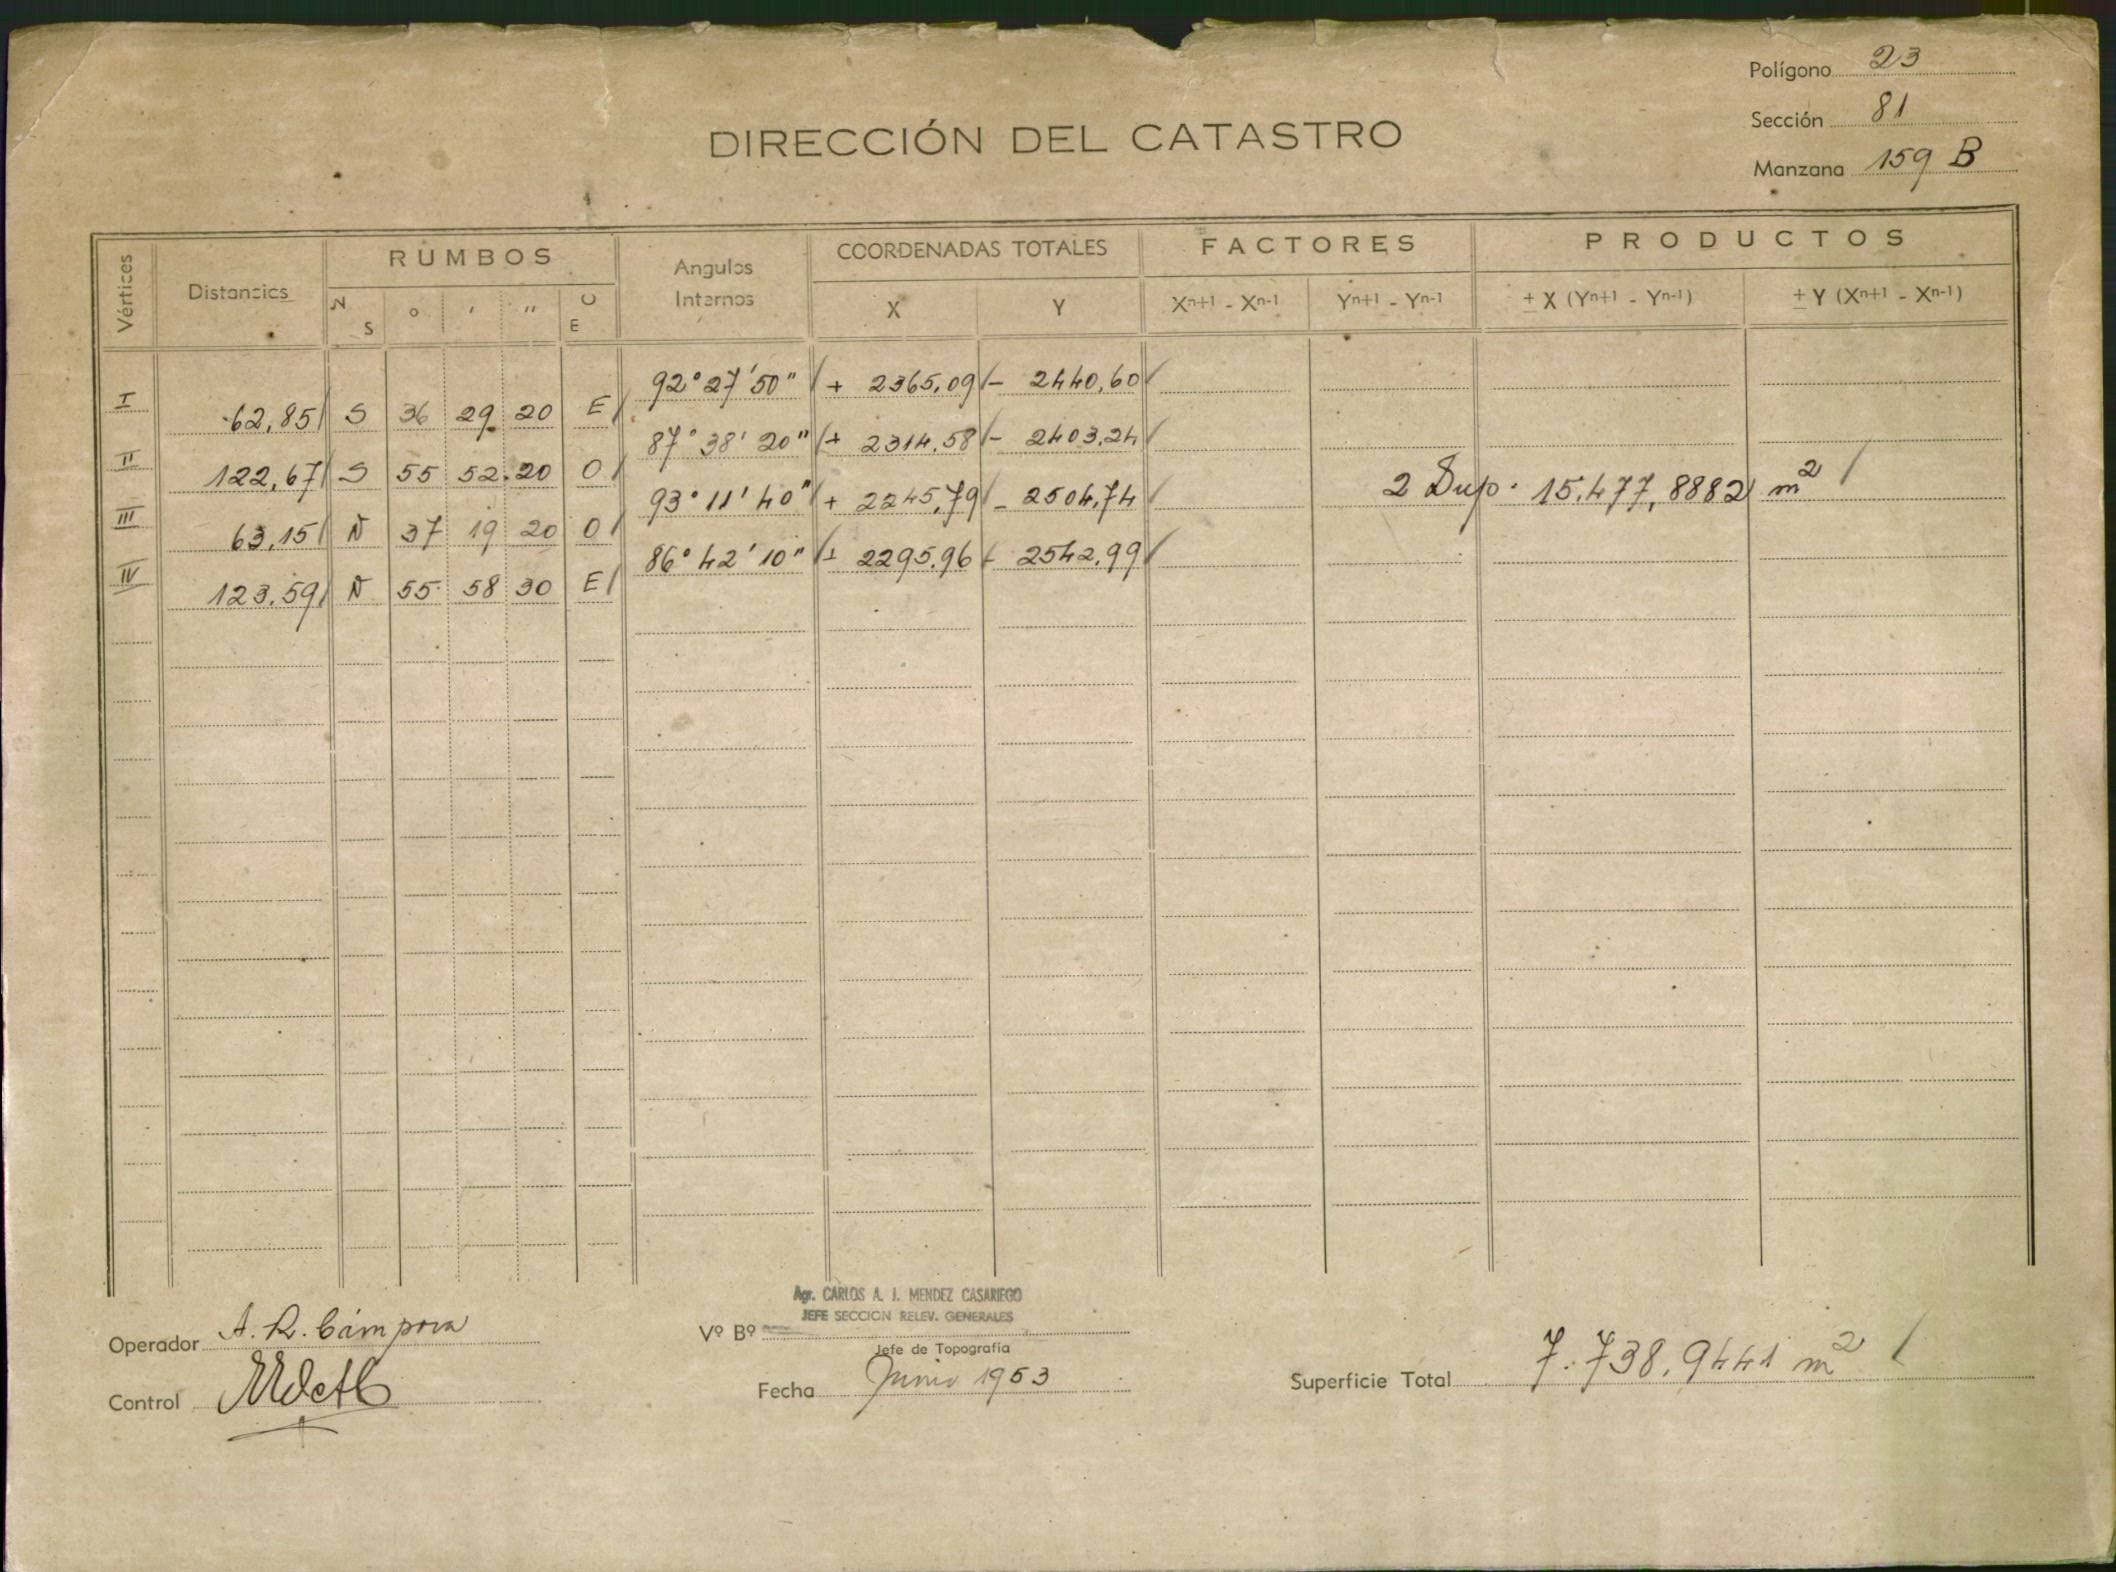 Polígono 23
Sección 81
Manzana 159 B
DIRECCIÓN DEL CATASTRO
Vértices
Distancias
RUMBOS
N S
° ' "
O E
Angulos Internos
COORDENADAS TOTALES
X Y
FACTORES
Xn+1 - Xn-1 Yn+1 - Yn-1
PRODUCTOS
± X (Yn+1 - Yn-1) ± Y (Xn+1 - Xn-1)
92° 27' 50" + 2365,09 - 2440,60
I 62,85 S 36 29 20 E
87° 38' 20" + 2314,58 - 2403,24
II 122,67 S 55 52 20 O
93° 11' 40" + 2245,79 - 2504,74
2 Sup. 15.477,8882 m2
III 63,15 N 37 19 20 O
86° 42' 10" + 2295,96 - 2542,99
IV 123,59 N 55 58 30 E
Agr. CARLOS A. J. MENDEZ CASARIEGO
JEFE SECCION RELEV. GENERALES
Operador A. R. Cámpora
Vº Bº
Jefe de Topografía
Control
Fecha Junio 1953
Superficie Total 7.738,9441 m2